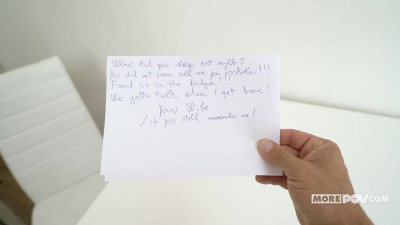 Where did you sleep last night?
You did not even call me you asshole!!!
Food is in the fridge!
We gotta talk when I get home!
Your Wife
/if you still remember me/
MOREPOV.COM